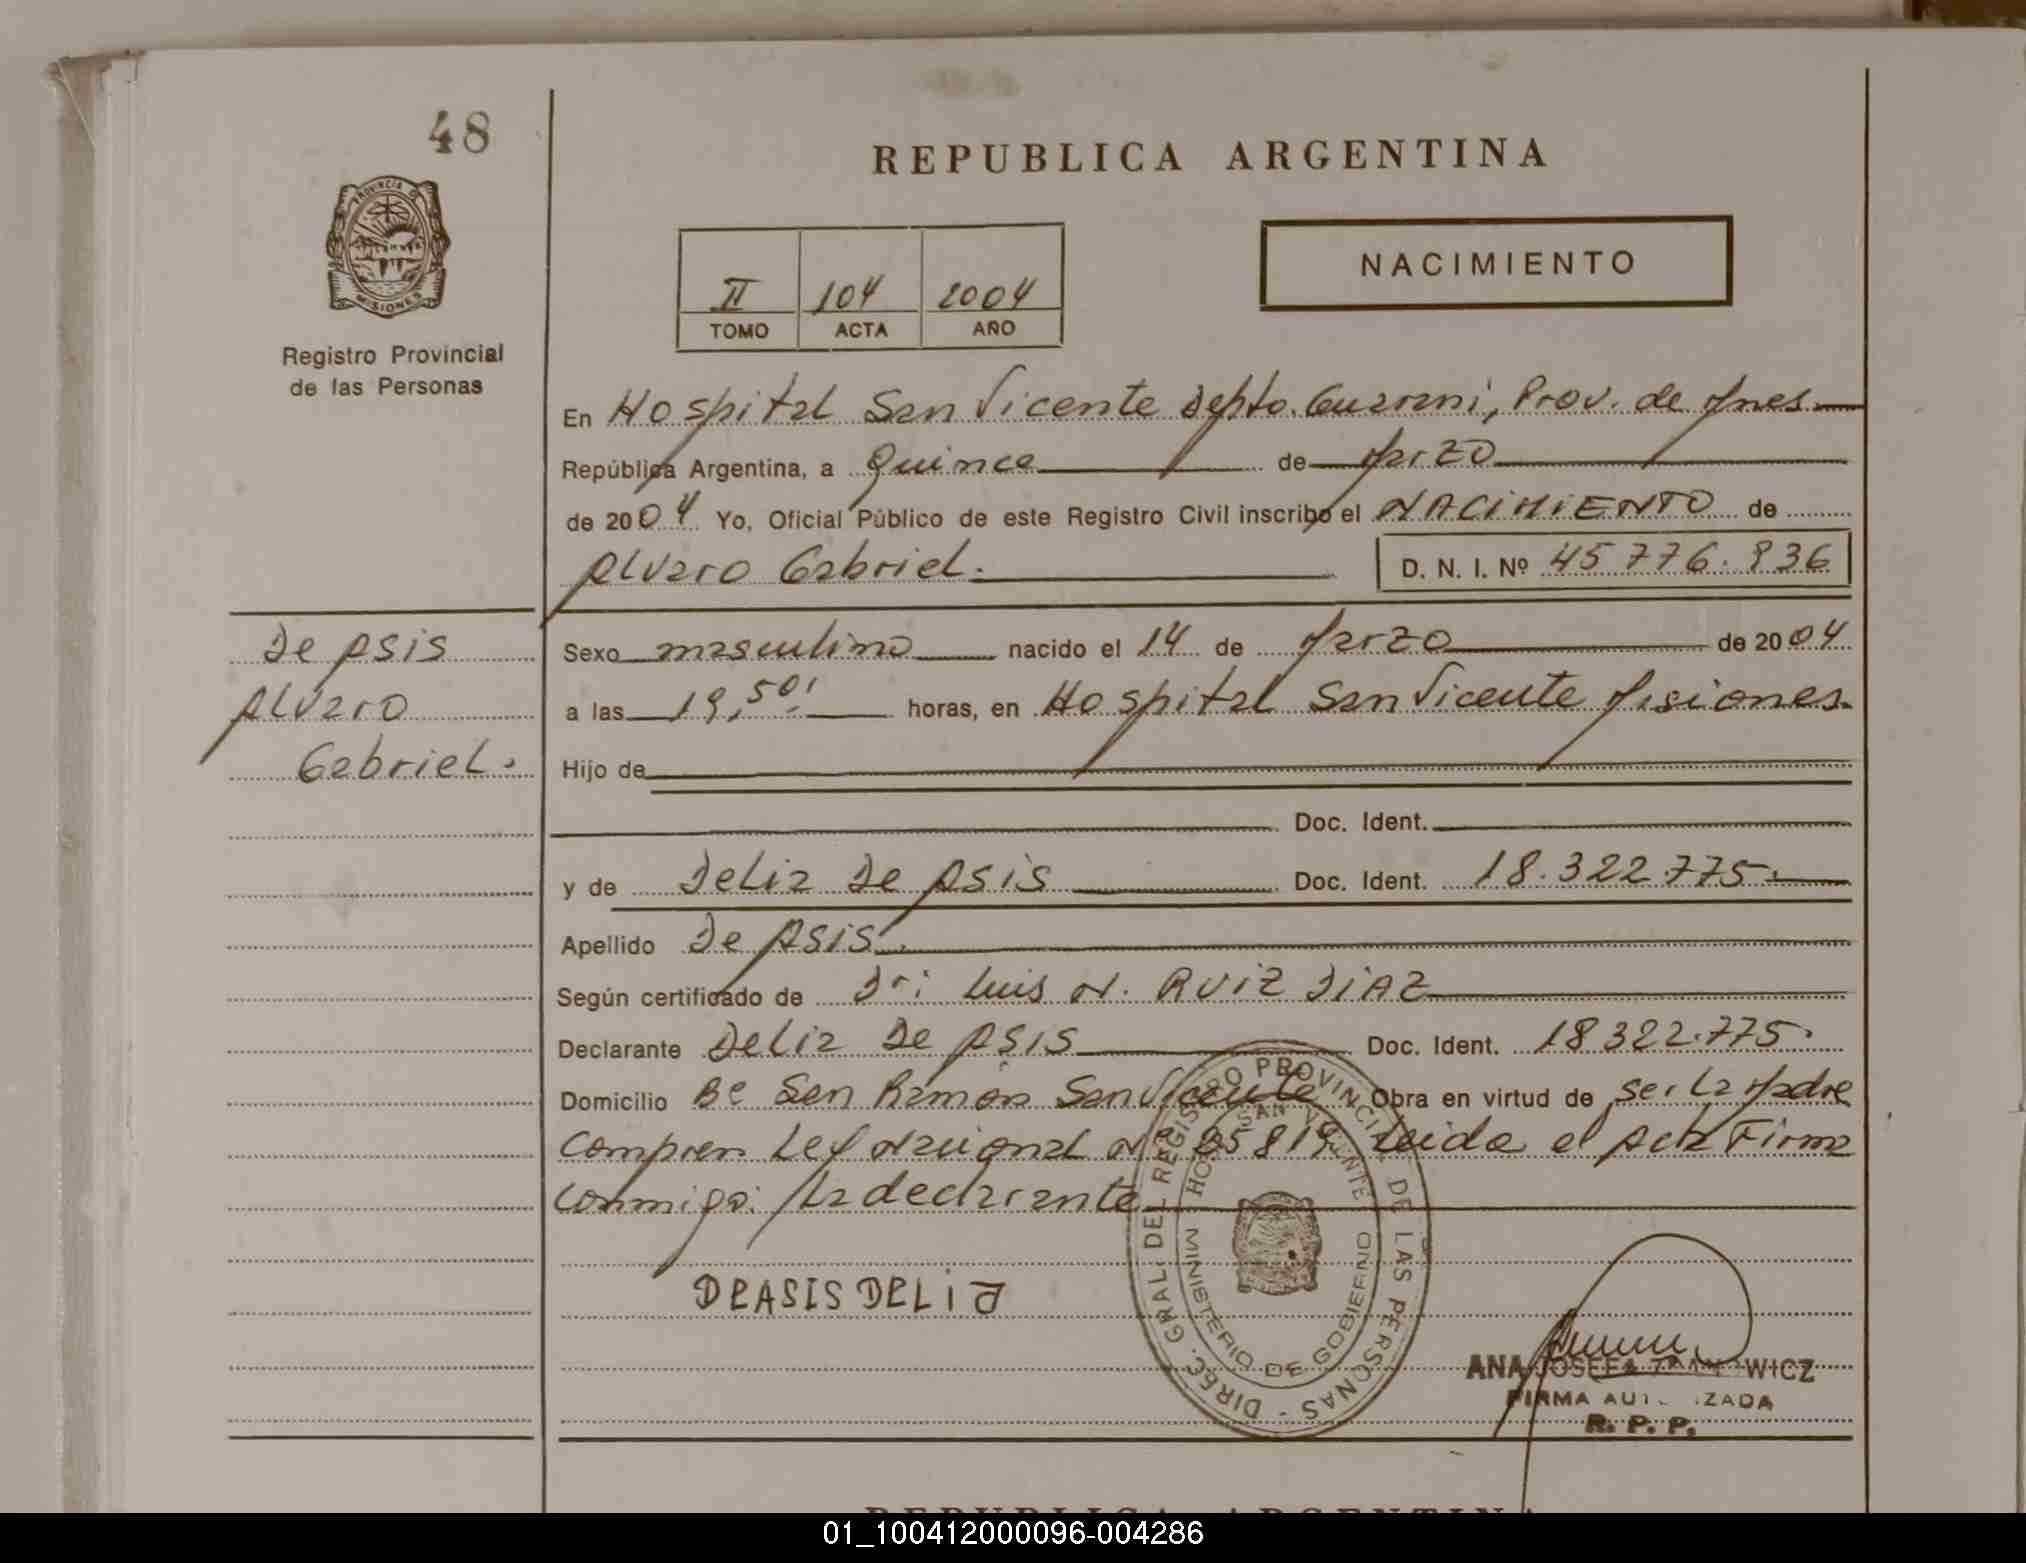 48
REPUBLICA ARGENTINA
PROVINCIA DE
MISIONES
Registro Provincial
de las Personas
NACIMIENTO
II 104 2004
TOMO ACTA AÑO
En Hospital San Vicente Depto. Guarani, Prov. de Mnes.
República Argentina, a Quince de Marzo
de 2004 Yo, Oficial Público de este Registro Civil inscribo el NACIMIENTO de
Alvaro Gabriel. D. N. I. Nº 45776.936
De Asis
Alvaro
Gabriel.
Sexo masculino nacido el 14 de Marzo de 2004
a las 19,50! horas, en Hospital San Vicente Misiones.
Hijo de
Doc. Ident.
y de Delia De Asis Doc. Ident. 18.322.775.
Apellido De Asis.
Según certificado de Dr: Luis N. RUIZ DIAZ
Declarante Delia De Asis Doc. Ident. 18322.775.
Domicilio Bº San Ramón San Vicente Obra en virtud de ser La Madre
Compren Ley Nacional Nº 25819 Leida el Acta Firma
Conmigo: La declarante
DEASIS DELIA
DIREC. GRAL. DEL REGISTRO PROVINCIAL DE LAS PERSONAS -
HOSP. SAN VICENTE
MINISTERIO DE GOBIERNO
ANA JOSEFA
FIRMA AUTORIZADA
R. P. P.
REPUBLICA ARGENTINA
01_100412000096-004286